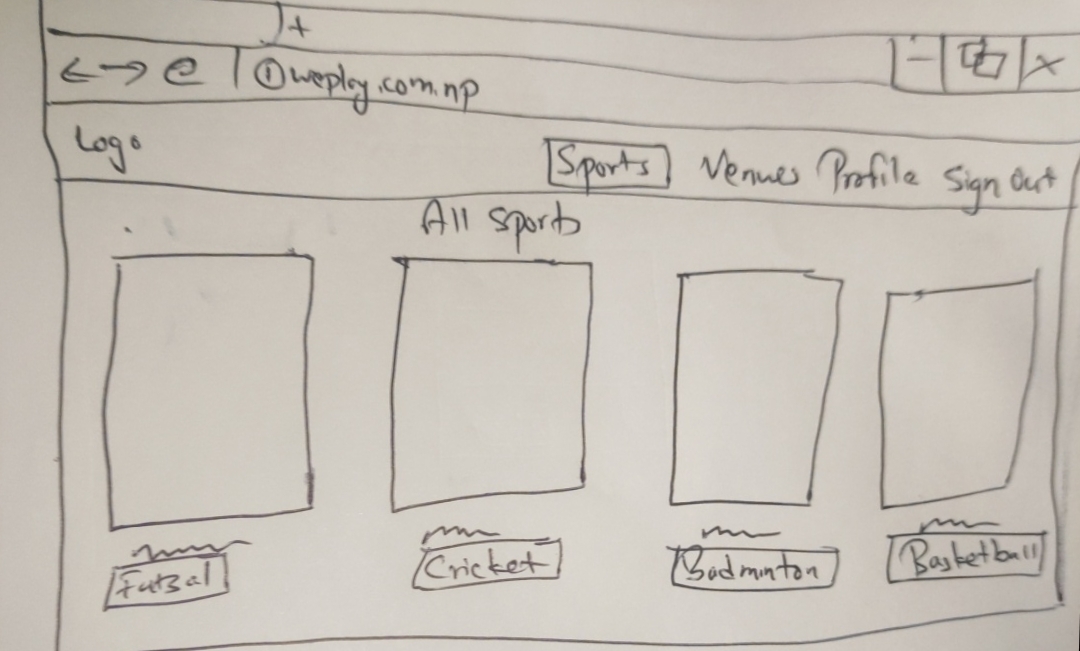 +
① weplay.com.np
Logo Sports Venues Profile Sign Out
All sports
Futsal Cricket Badminton Basketball